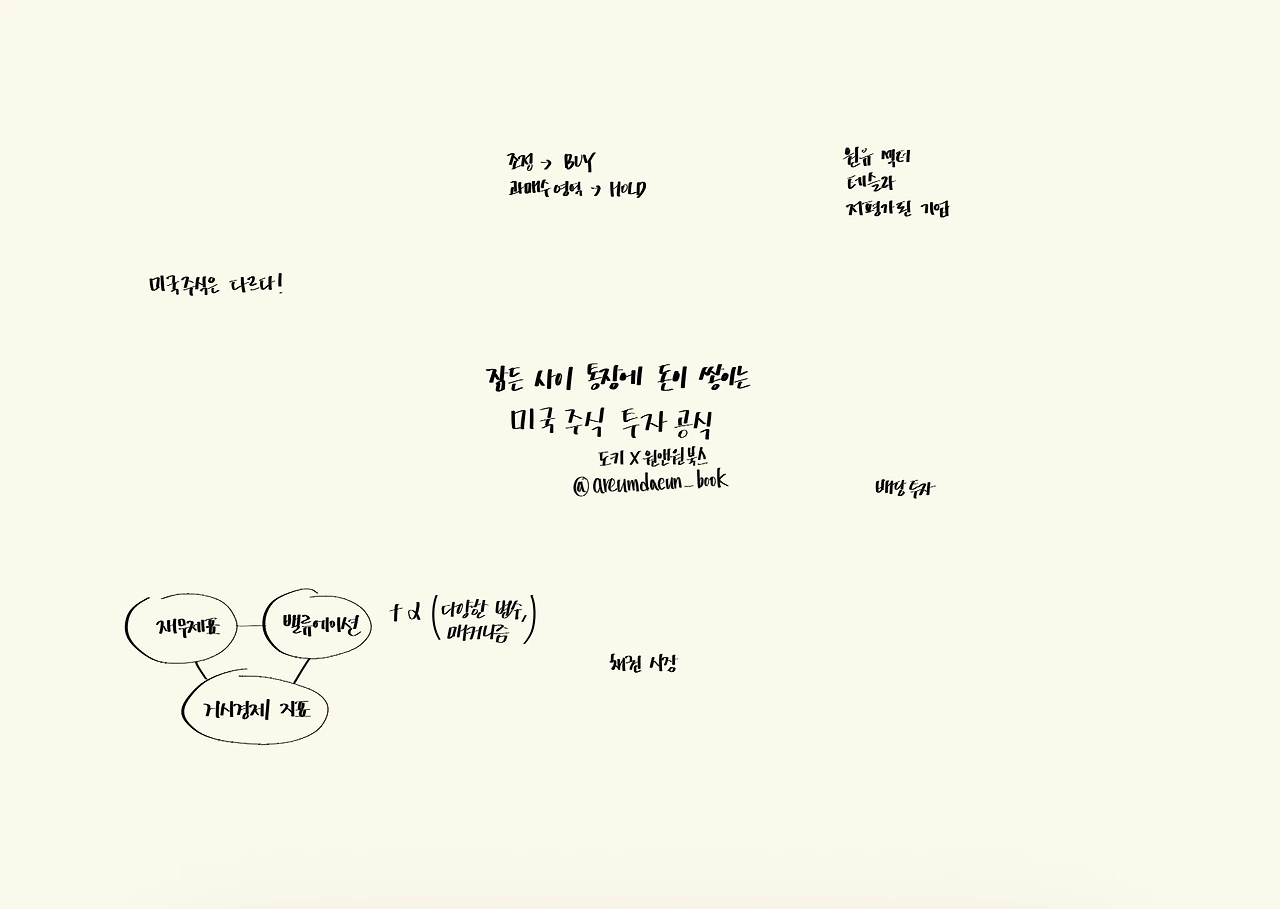 조정 → BUY
과매수 영역 → HOLD
원유 섹터
테슬라
저평가된 기업
미국주식은 다르다!
잠든 사이 통장에 돈이 쌓이는
미국 주식 투자 공식
도키 X 원앤원북스
@areumdaeun_book
배당 투자
재무제표
밸류에이션
+ α (다양한 변수,
매커니즘)
거시경제 지표
채권 시장